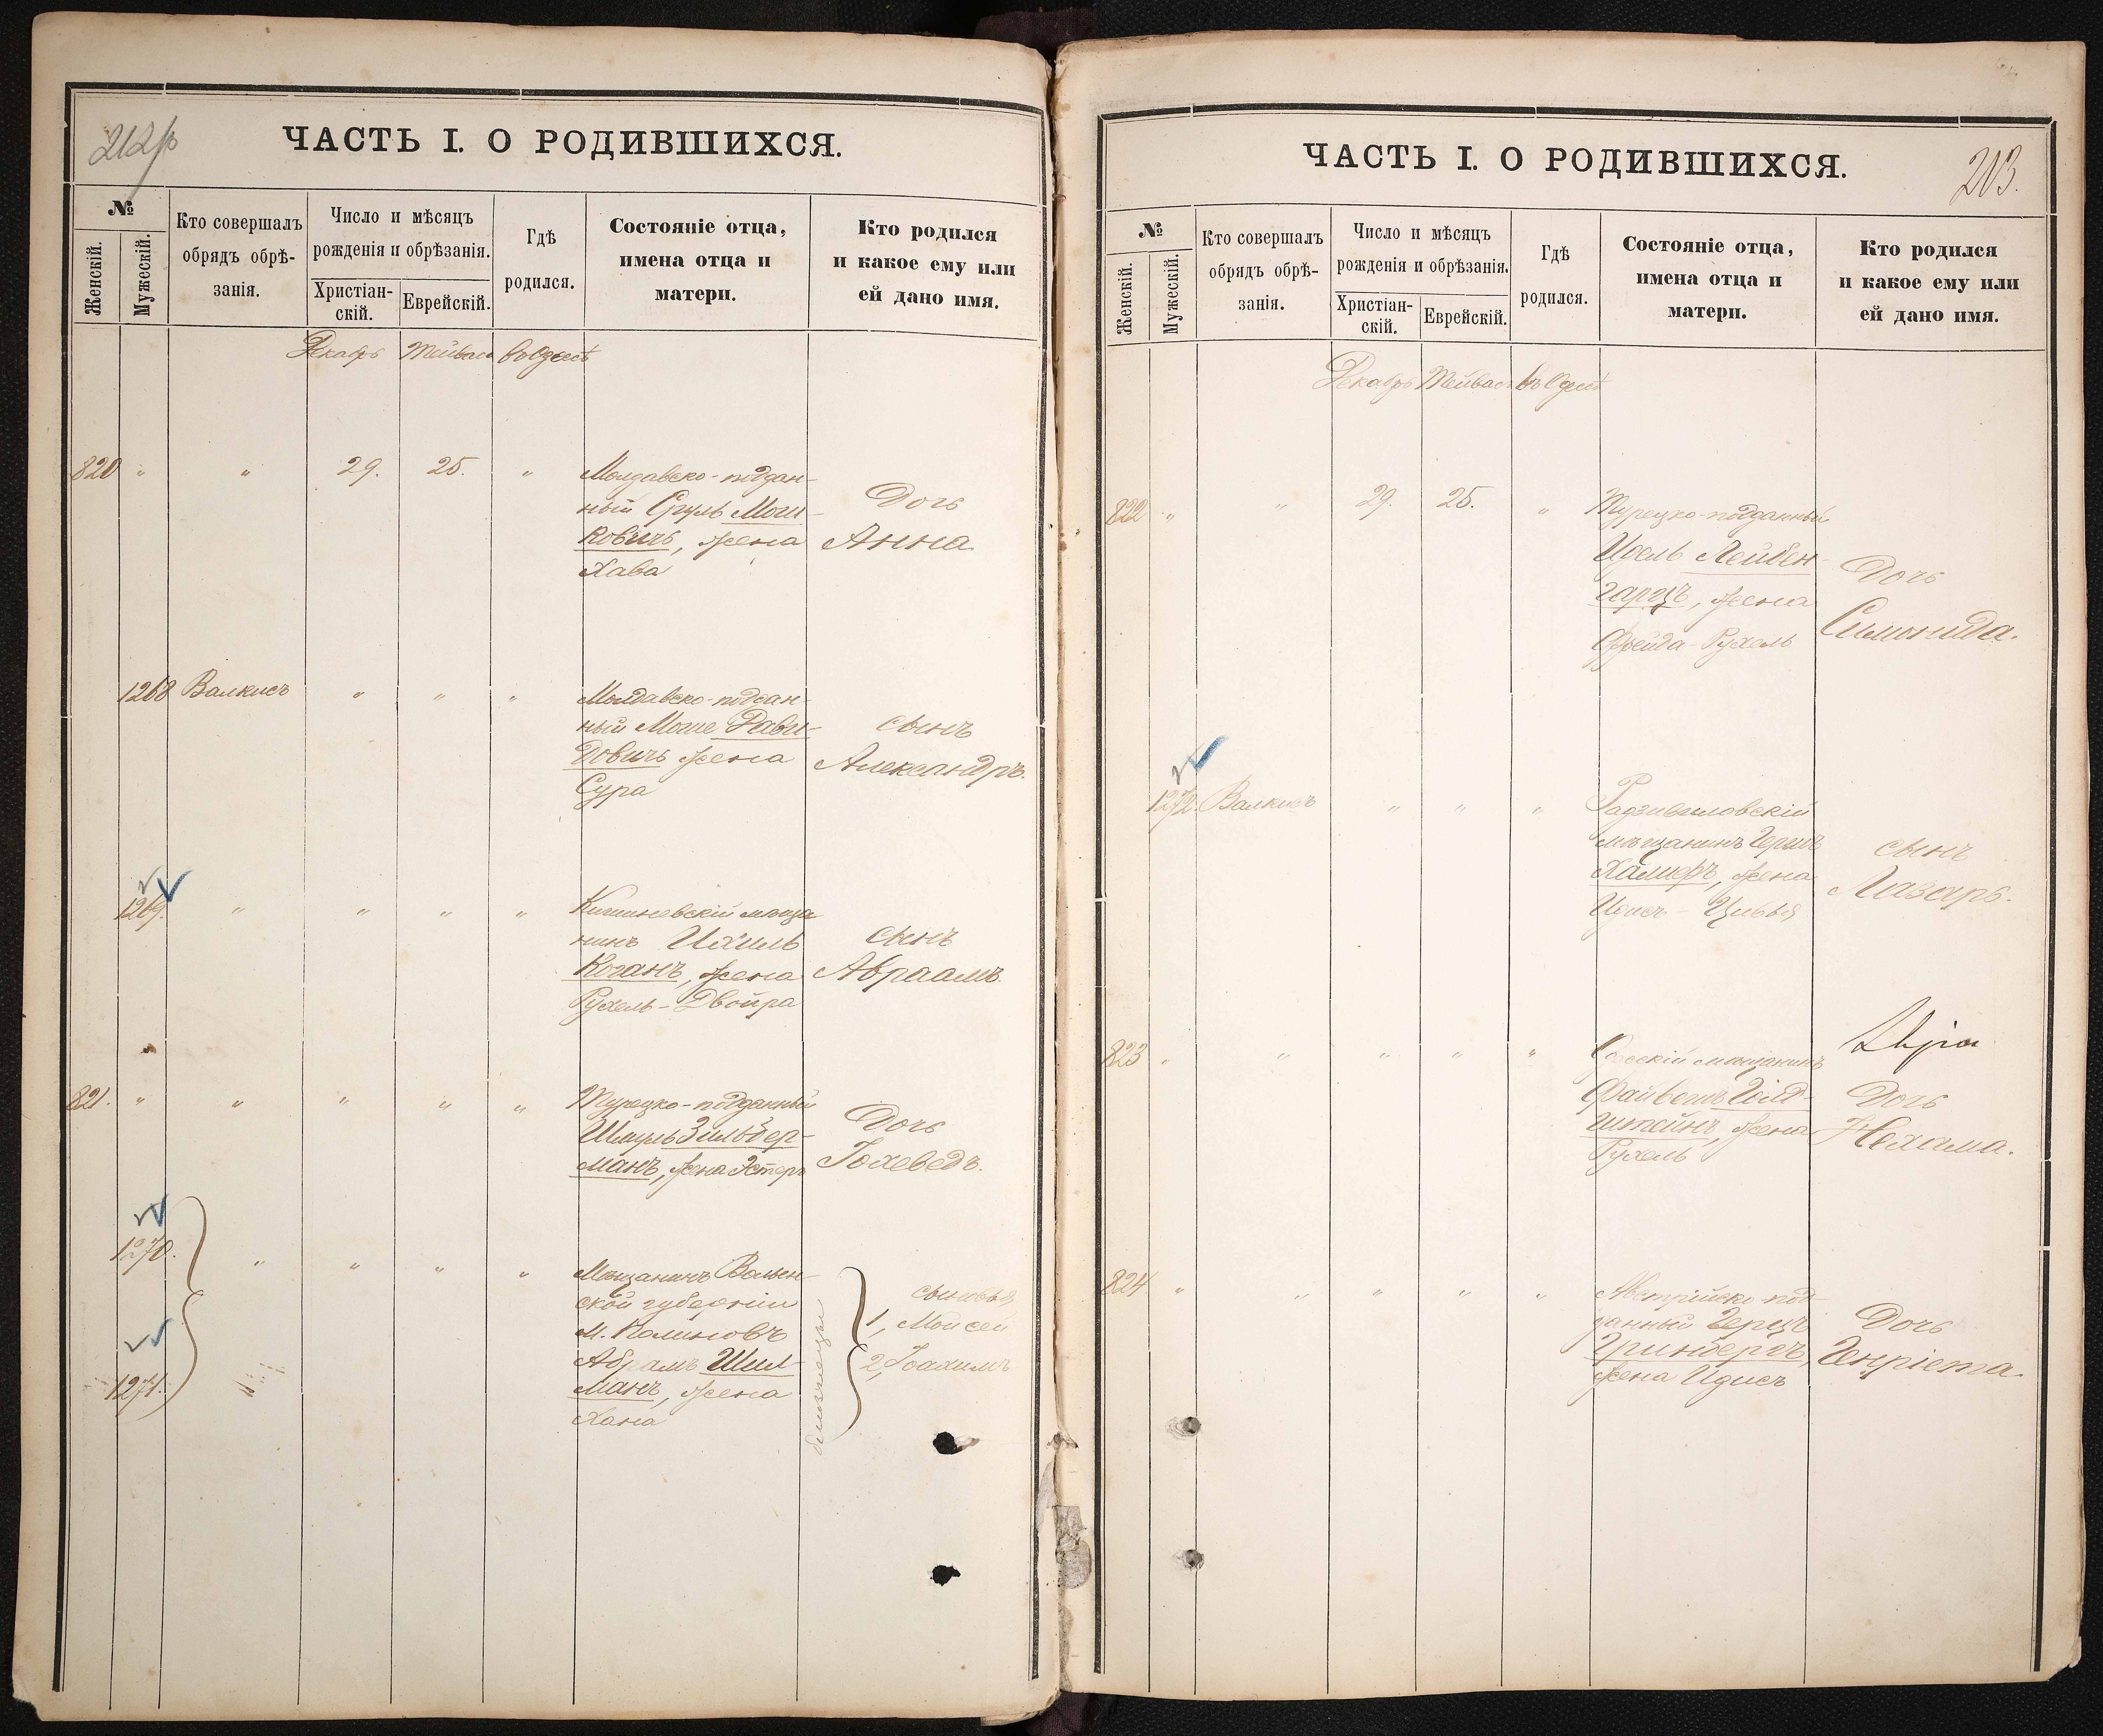 ЧАСТЬ I. О РОДИВШИХСЯ.
№
Женскій.
Мужескій.
Кто совершалъ
обрядъ обрѣ-
занія.
Число и мѣсяцъ
рожденія и обрѣзанія.
Христіан-
скій.
Еврейскій.
Гдѣ
родился.
Состояніе отца,
имена отца и
матери.
Кто родился
и какое ему или
ей дано имя.
Декабрь Тейвасъ въ Одессѣ
820 " " 29. 25. "
Молдавско-поддан-
ный Сруль Моги-
ковичъ, жена
Хава
Дочь
Анна
1268 Валкисъ " " "
Молдавско-поддан-
ный Моше Дави-
довичъ жена
Сура
сынъ
Александръ.
1269. " " " "
Кишиневскій мѣща
нинъ Ихиль
Коганъ, жена
Рухель-Двойра
сынъ
Авраамъ.
821. " " " " "
Турецко-подданный
Шмуль Зильбер-
манъ, жена Эстеръ
Дочь
Іохеведъ.
1270.
1271.
" " " "
Мѣщанинъ Волын-
ской губерніи
М. Полиновъ
Абрамъ Шил-
манъ, жена
Хана
близнецы
сыновья
1, Мойсей
2, Іоахимъ
ЧАСТЬ I. О РОДИВШИХСЯ.
203.
№
Женскій.
Мужескій.
Кто совершалъ
обрядъ обрѣ-
занія.
Число и мѣсяцъ
рожденія и обрѣзанія.
Христіан-
скій.
Еврейскій.
Гдѣ
родился.
Состояніе отца,
имена отца и
матери.
Кто родился
и какое ему или
ей дано имя.
Декабрь Тейвасъ въ Одессѣ
822 " " 29. 25. "
Турецко-подданный
Идель Лейбен-
гарцъ, жена
Фрейда-Рухель
Дочь
Симонида.
1272. Валкисъ " " "
Радзивиловскій
мѣщанинъ Гершъ
Халифъ, жена
Идисъ-Цивья
сынъ
Лазарь.
823 " " " " "
Одесскій мѣщанинъ
Файвешъ Голд-
штайнъ, жена
Рухель
Дочь
Нехама.
824 " " " " "
Австрійско-под-
данный Герцъ
Гринбергъ,
жена Идисъ
Дочь
Генріета.